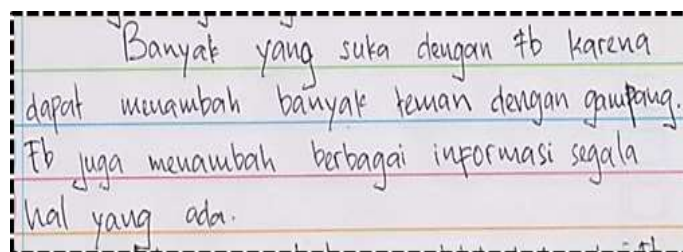 Banyak yang suka dengan Fb karena
dapat menambah banyak teman dengan gampang.
Fb juga menambah berbagai informasi segala
hal yang ada.